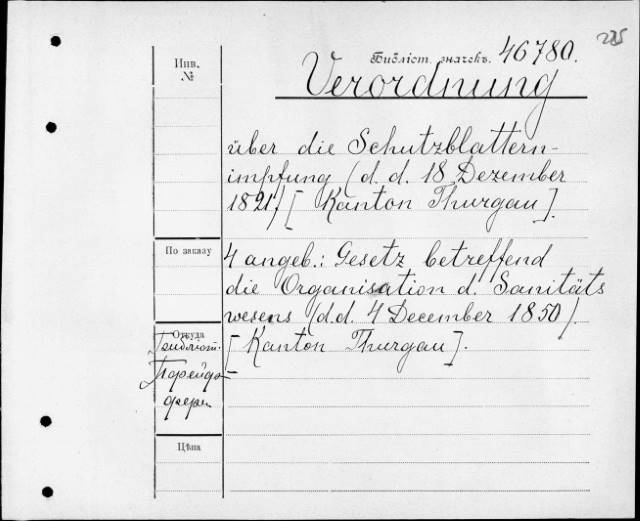 225
Библіот. значекъ. 46780.
Инв.
№
Verordnung
über die Schutzblattern-
impfung (d. d. 18 Dezember
1821) [Kanton Thurgau].
По заказу
4 angeb.: Gesetz betreffend
die Organisation d. Sanitäts
wesens (d.d. 4 December 1850).
[Kanton Thurgau].
Откуда
Цѣна